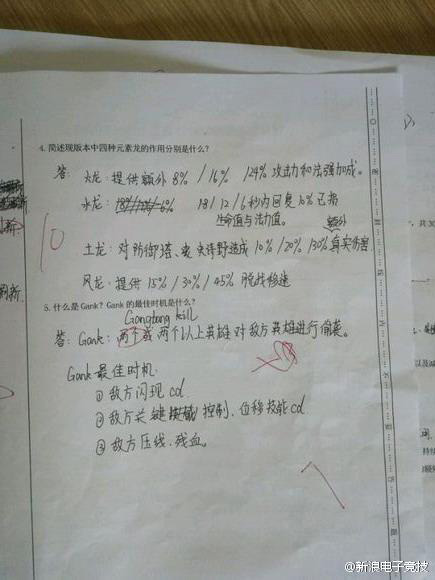 4. 简述现版本中四种元素龙的作用分别是什么?
答: 火龙: 提供额外 8% / 16% /24% 攻击力和法强加成。
水龙: 18 / 12 / 6 秒内回复 10% 已损
生命值与法力值。
额外
土龙: 对防御塔、史诗野造成 10% / 20% /30% 真实伤害
风龙: 提供 15% / 30% / 45% 脱战移速
10
5. 什么是Gank? Gank的最佳时机是什么?
Gangbang kill
答: Gank: 两个或两个以上英雄对敌方英雄进行偷袭。
Gank最佳时机
① 敌方闪现cd
② 敌方关键技能控制、位移技能cd
③ 敌方压线、残血。
7
@新浪电子竞技